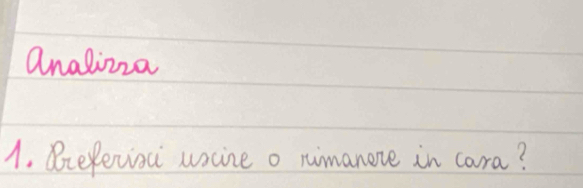 Analizza
1. Preferisci uscire o rimanere in casa?